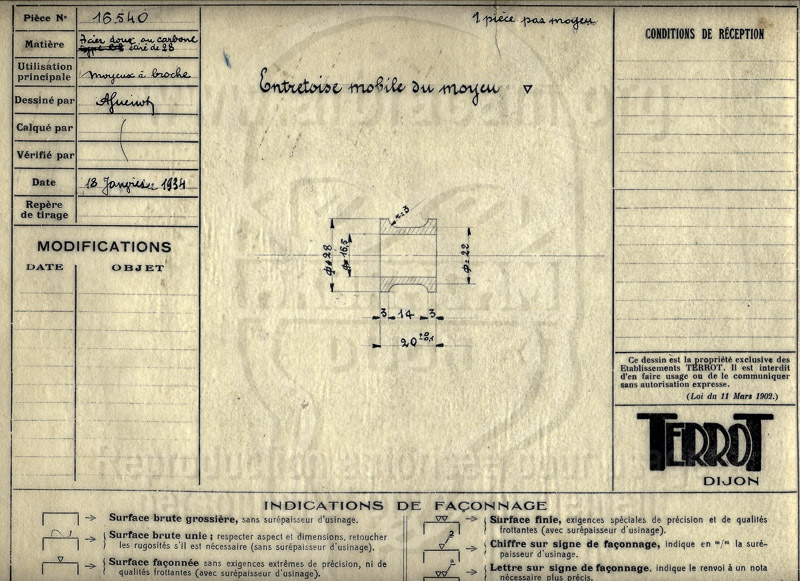 Pièce N° 16.540
Matière Acier doux au carbone
étiré de 28
Utilisation
principale Moyeux à broche
Dessiné par
Calqué par
Vérifié par
Date 18 Janvier 1934
Repère
de tirage
MODIFICATIONS
DATE OBJET
1 pièce par moyeu
Entretoise mobile du moyeu ▽
r=3
Φ=28
Φ=16,5
Φ=22
3 14 3
20 +0 -0,1
CONDITIONS DE RÉCEPTION
Ce dessin est la propriété exclusive des
Etablissements TERROT. Il est interdit
d'en faire usage ou de le communiquer
sans autorisation expresse.
(Loi du 11 Mars 1902.)
TERROT
DIJON
INDICATIONS DE FAÇONNAGE
Surface brute grossière, sans surépaisseur d'usinage.
Surface brute unie ; respecter aspect et dimensions, retoucher
les rugosités s'il est nécessaire (sans surépaisseur d'usinage).
Surface façonnée sans exigences extrêmes de précision, ni de
qualités frottantes (avec surépaisseur d'usinage).
Surface finie, exigences spéciales de précision et de qualités
frottantes (avec surépaisseur d'usinage).
Chiffre sur signe de façonnage, indique en m/m la suré-
paisseur d'usinage.
Lettre sur signe de façonnage, indique le renvoi à un nota
nécessaire plus précis.